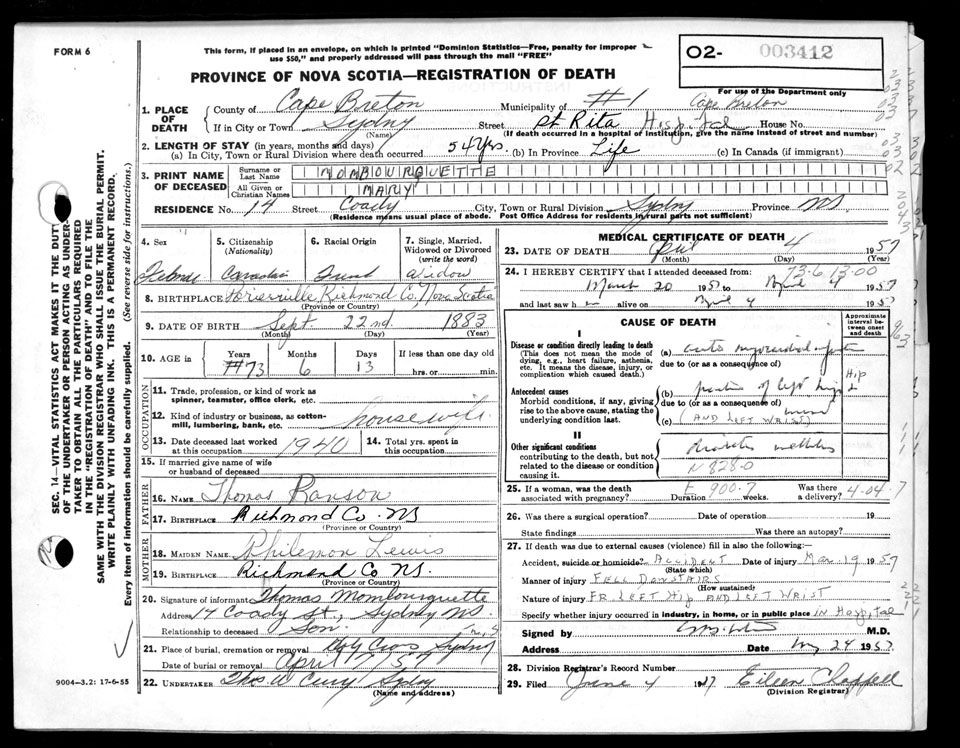 FORM 6
This form, if placed in an envelope, on which is printed "Dominion Statistics—Free, penalty for improper
use $50," and properly addressed will pass through the mail "FREE"
PROVINCE OF NOVA SCOTIA—REGISTRATION OF DEATH
O2- 003412
For use of the Department only
1. PLACE OF DEATH
County of Cape Breton Municipality of #1 Cape Breton
If in City or Town Sydny Street St Rita Hospital House No.
(Name) (If death occurred in a hospital of institution, give the name instead of street and number)
2. LENGTH OF STAY (in years, months and days)
(a) In City, Town or Rural Division where death occurred 54 Yrs. (b) In Province Life (c) In Canada (if immigrant)
3. PRINT NAME OF DECEASED
Surname or Last Name MOMBOURQUETTE
All Given or Christian Names MARY
RESIDENCE No. 14 Street Coady City, Town or Rural Division Sydny Province NS.
(Residence means usual place of abode. Post Office Address for residents in rural parts not sufficient)
4. Sex
5. Citizenship (Nationality)
6. Racial Origin
7. Single, Married, Widowed or Divorced (write the word)
Canadian Widow
8. BIRTHPLACE Richmond Co, Nova Scotia
(Province or Country)
9. DATE OF BIRTH Sept. 22nd. 1883
(Month) (Day) (Year)
10. AGE in Years 73 Months 6 Days 13 If less than one day old
hrs. or min.
OCCUPATION
11. Trade, profession, or kind of work as
spinner, teamster, office clerk, etc.
12. Kind of industry or business, as cotton-
mill, lumbering, bank, etc. housewife
13. Date deceased last worked at this occupation 1940 14. Total yrs. spent in this occupation
15. If married give name of wife
or husband of deceased
FATHER
16. NAME Thomas Ranson
17. BIRTHPLACE Richmond Co. NS
(Province or Country)
MOTHER
18. MAIDEN NAME Philemon Lewis
19. BIRTHPLACE Richmond Co NS.
(Province or Country)
20. Signature of informant Thomas Mombourquette
Address 14 Coady St., Sydny NS.
Relationship to deceased Son
21. Place of burial, cremation or removal Holy Cross Sydny
Date of burial or removal April 7/57
22. UNDERTAKER Thos W Curry Sydny
(Name and address)
9004—3.2: 17-6-55
MEDICAL CERTIFICATE OF DEATH
23. DATE OF DEATH April 4 1957
(Month) (Day) (Year)
73-6 13-00
24. I HEREBY CERTIFY that I attended deceased from:
March 20 1957 to April 4 1957
and last saw h er alive on April 4 1957
CAUSE OF DEATH
Approximate interval between onset and death
I
Disease or condition directly leading to death
(This does not mean the mode of dying, e.g., heart failure, asthenia, etc. It means the disease, injury, or complication which caused death.)
(a)
due to (or as a consequence of)
Antecedent causes
Morbid conditions, if any, giving rise to the above cause, stating the underlying condition last.
(b) of left Hip
due to (or as a consequence of)
(c) (AND LEFT WRIST)
II
Other significant conditions
contributing to the death, but not related to the disease or condition causing it.
N 828-0
25. If a woman, was the death associated with pregnancy? E 900.7 Duration weeks. Was there a delivery? 4-04 7
26. Was there a surgical operation? Date of operation 19
State findings Was there an autopsy?
27. If death was due to external causes (violence) fill in also the following:—
Accident, suicide or homicide? ACCIDENT Date of injury Mar 19 1957
(State which)
Manner of injury FELL DOWNSTAIRS
(How sustained)
Nature of injury FR. LEFT HIP AND LEFT WRIST
Specify whether injury occurred in industry, in home, or in public place IN Hospital
Signed by M.D.
Address Date 24 1957
28. Division Registrar's Record Number
29. Filed June 4 1957 Eileen Chappell
(Division Registrar)
SEC. 14—VITAL STATISTICS ACT MAKES IT THE DUTY
OF THE UNDERTAKER OR PERSON ACTING AS UNDER-
TAKER TO OBTAIN ALL THE PARTICULARS REQUIRED
IN THE "REGISTRATION OF DEATH" AND TO FILE THE
SAME WITH THE DIVISION REGISTRAR WHO SHALL ISSUE THE BURIAL PERMIT.
WRITE PLAINLY WITH UNFADING INK. THIS IS A PERMANENT RECORD.
Every item of information should be carefully supplied. (See reverse side for instructions.)